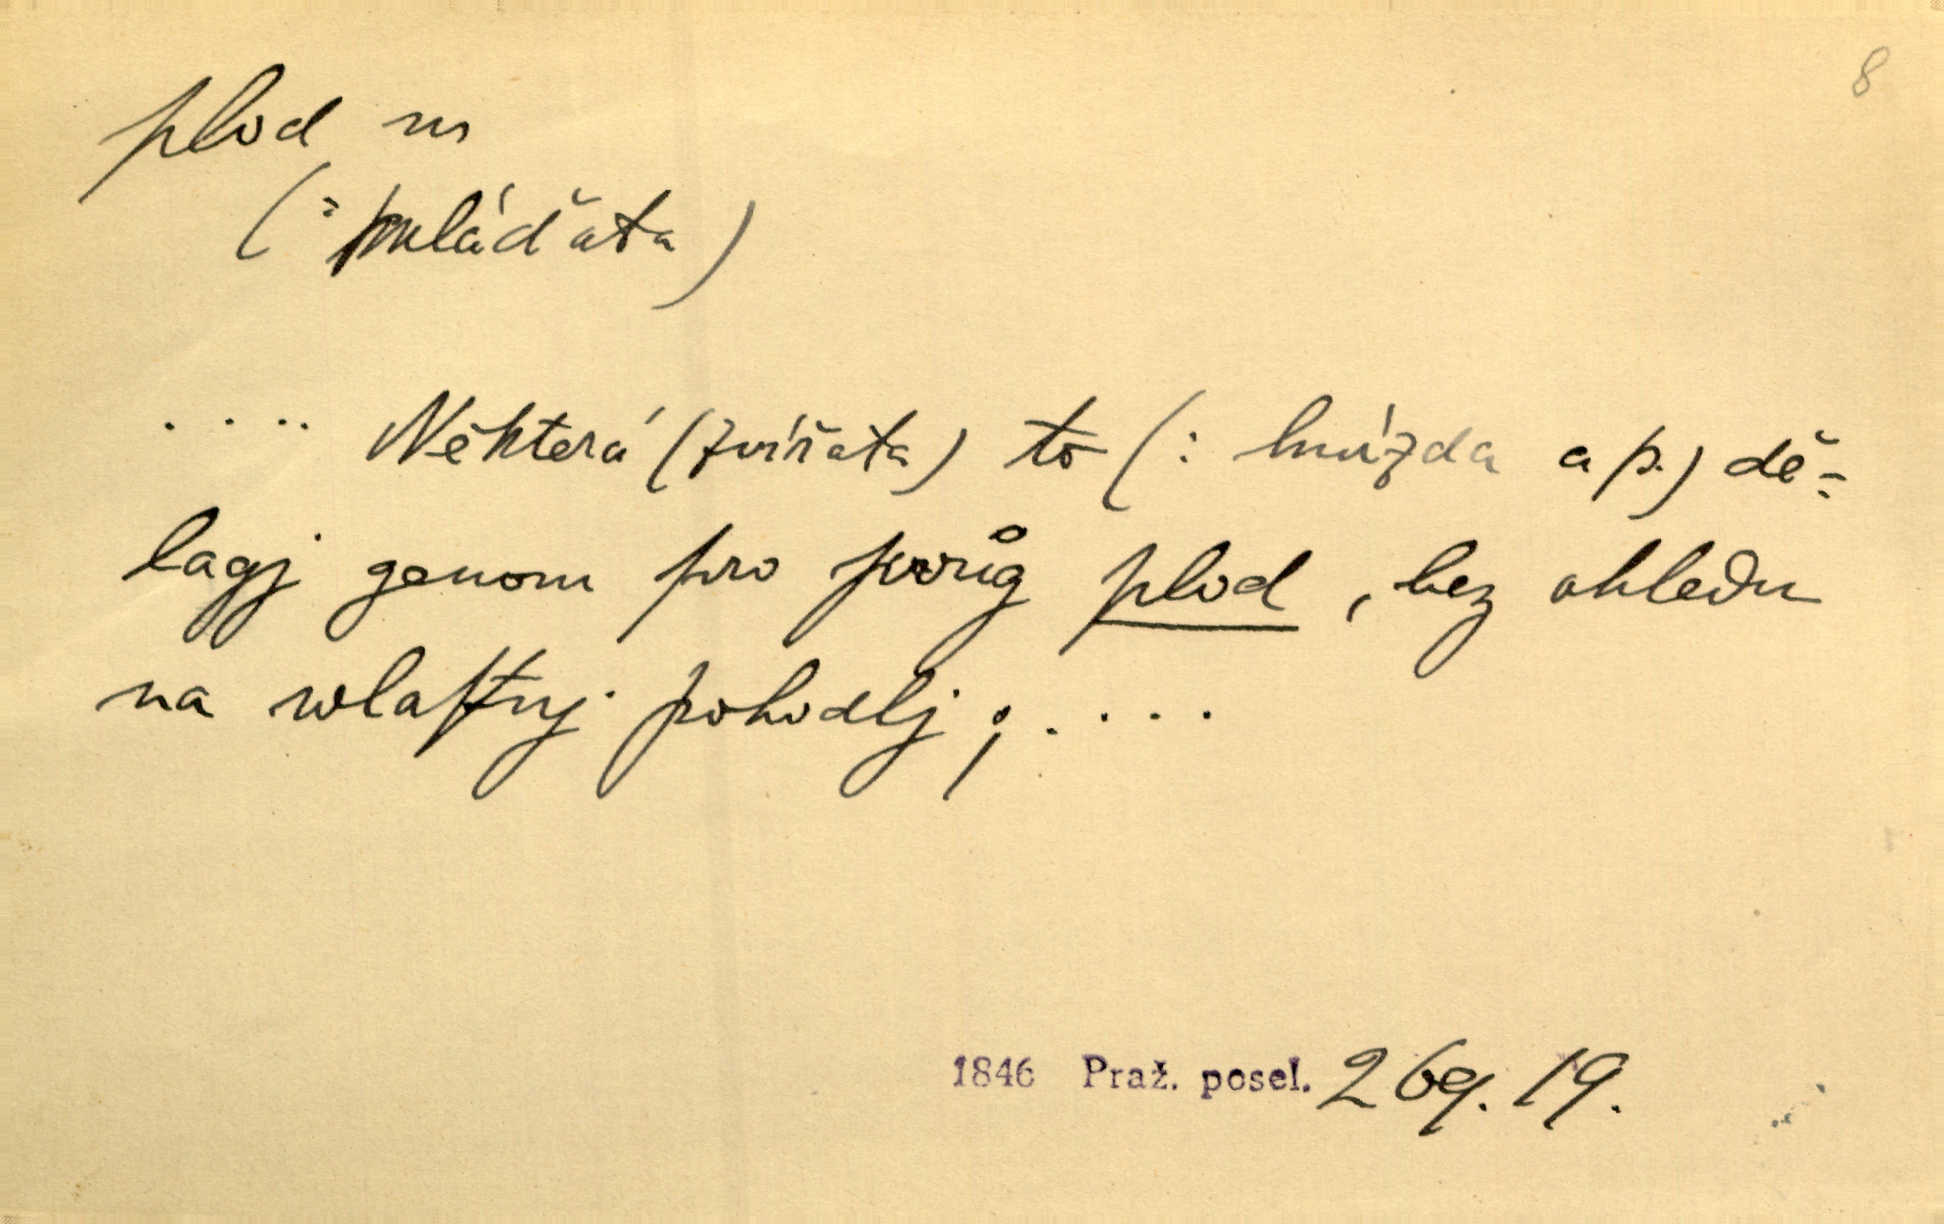 8
plod m
(= mláďata)
.... Některá (zvířata) to (: hnízda a p.) dě-
lagj genom pro swůg plod, bez ohledu
na wlaſtnj pohodlj; ....
1846 Praž. posel. 269. 19.